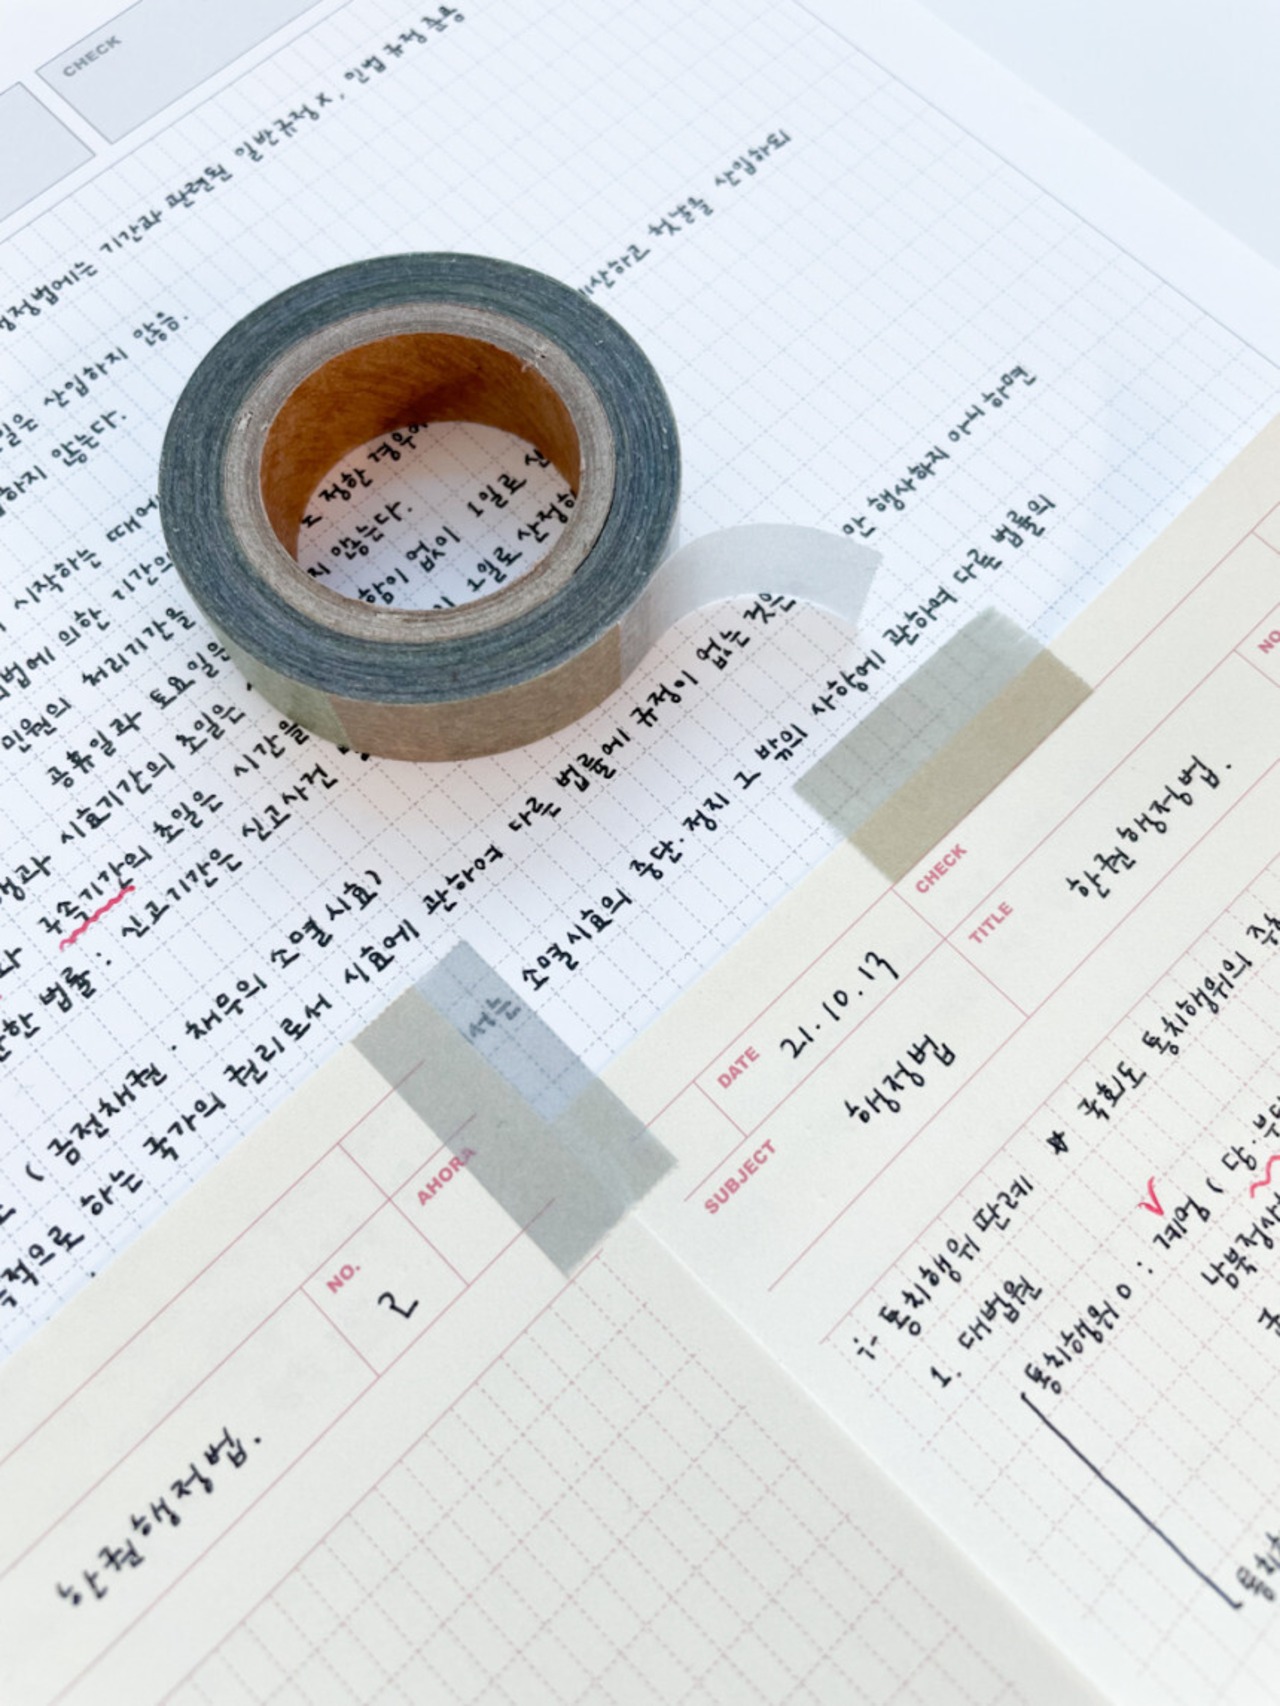 CHECK
행정법에는 기간과 관련된 일반규정 X, 민법 규정 준용
계산하고 첫날을 산입하되
일은 산입하지 않음.
하지 않는다.
정한 경우에
시작하는 때에
지 않는다.
법에 의한 기간의
함이 없이 1일로 산
민원의 처리기간을
1일로 산정
공휴일과 토요일은
안 행사하지 아니하면
과 시효기간의 초일은
구속기간의 초일은 시간을
한 법률 : 신고기간은 신고사건
( 금전채권 · 채무의 소멸시효)
적으로 하는 국가의 권리로서 시효에 관하여 다른 법률에 규정이 없는 것은
서는 소멸시효의 중단·정지 그 밖의 사항에 관하여 다른 법률의
AHORA
NO.
2
한권행정법.
CHECK
NO.
DATE
21.10.13
TITLE
한권행정법.
SUBJECT
행정법
i- 통치행위 판례 ☆ 국회도 통치행위의 주
1. 대법원
통치행위 O : 계엄 ( 당·부당
남북정상
통치